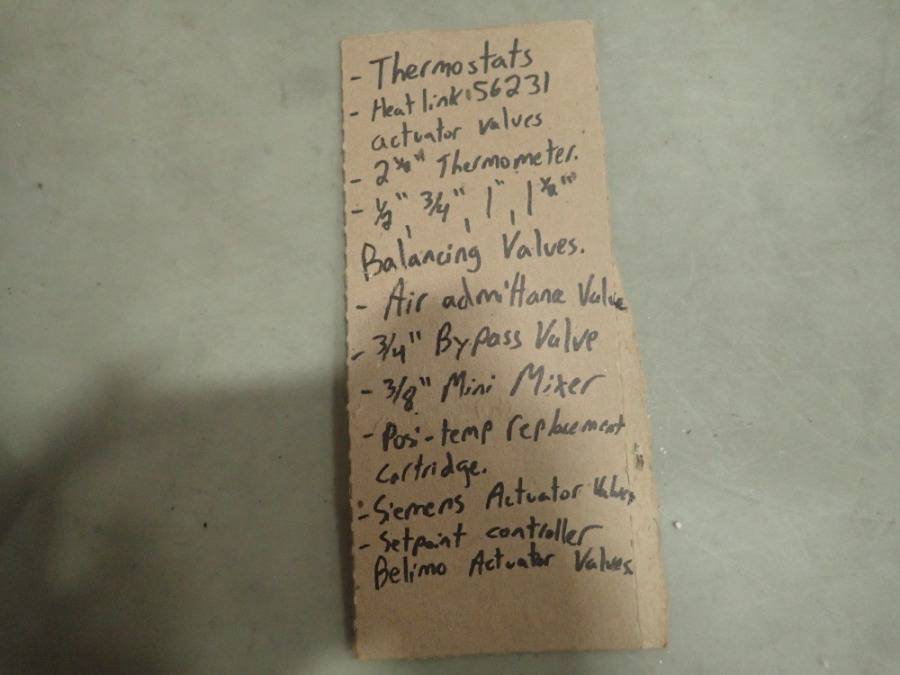 - Thermostats
- Heatlink 56231
actuator valves
- 2 ½" Thermometer.
- ½", ¾", 1", 1 ½"
Balancing Valves.
- Air admittane Valve
- 3/4" Bypass Valve
- 3/8" Mini Mixer
- Posi-temp replacement
Cartridge.
- Siemens Actuator Valves
- Setpoint controller
Belimo Actuator Valves